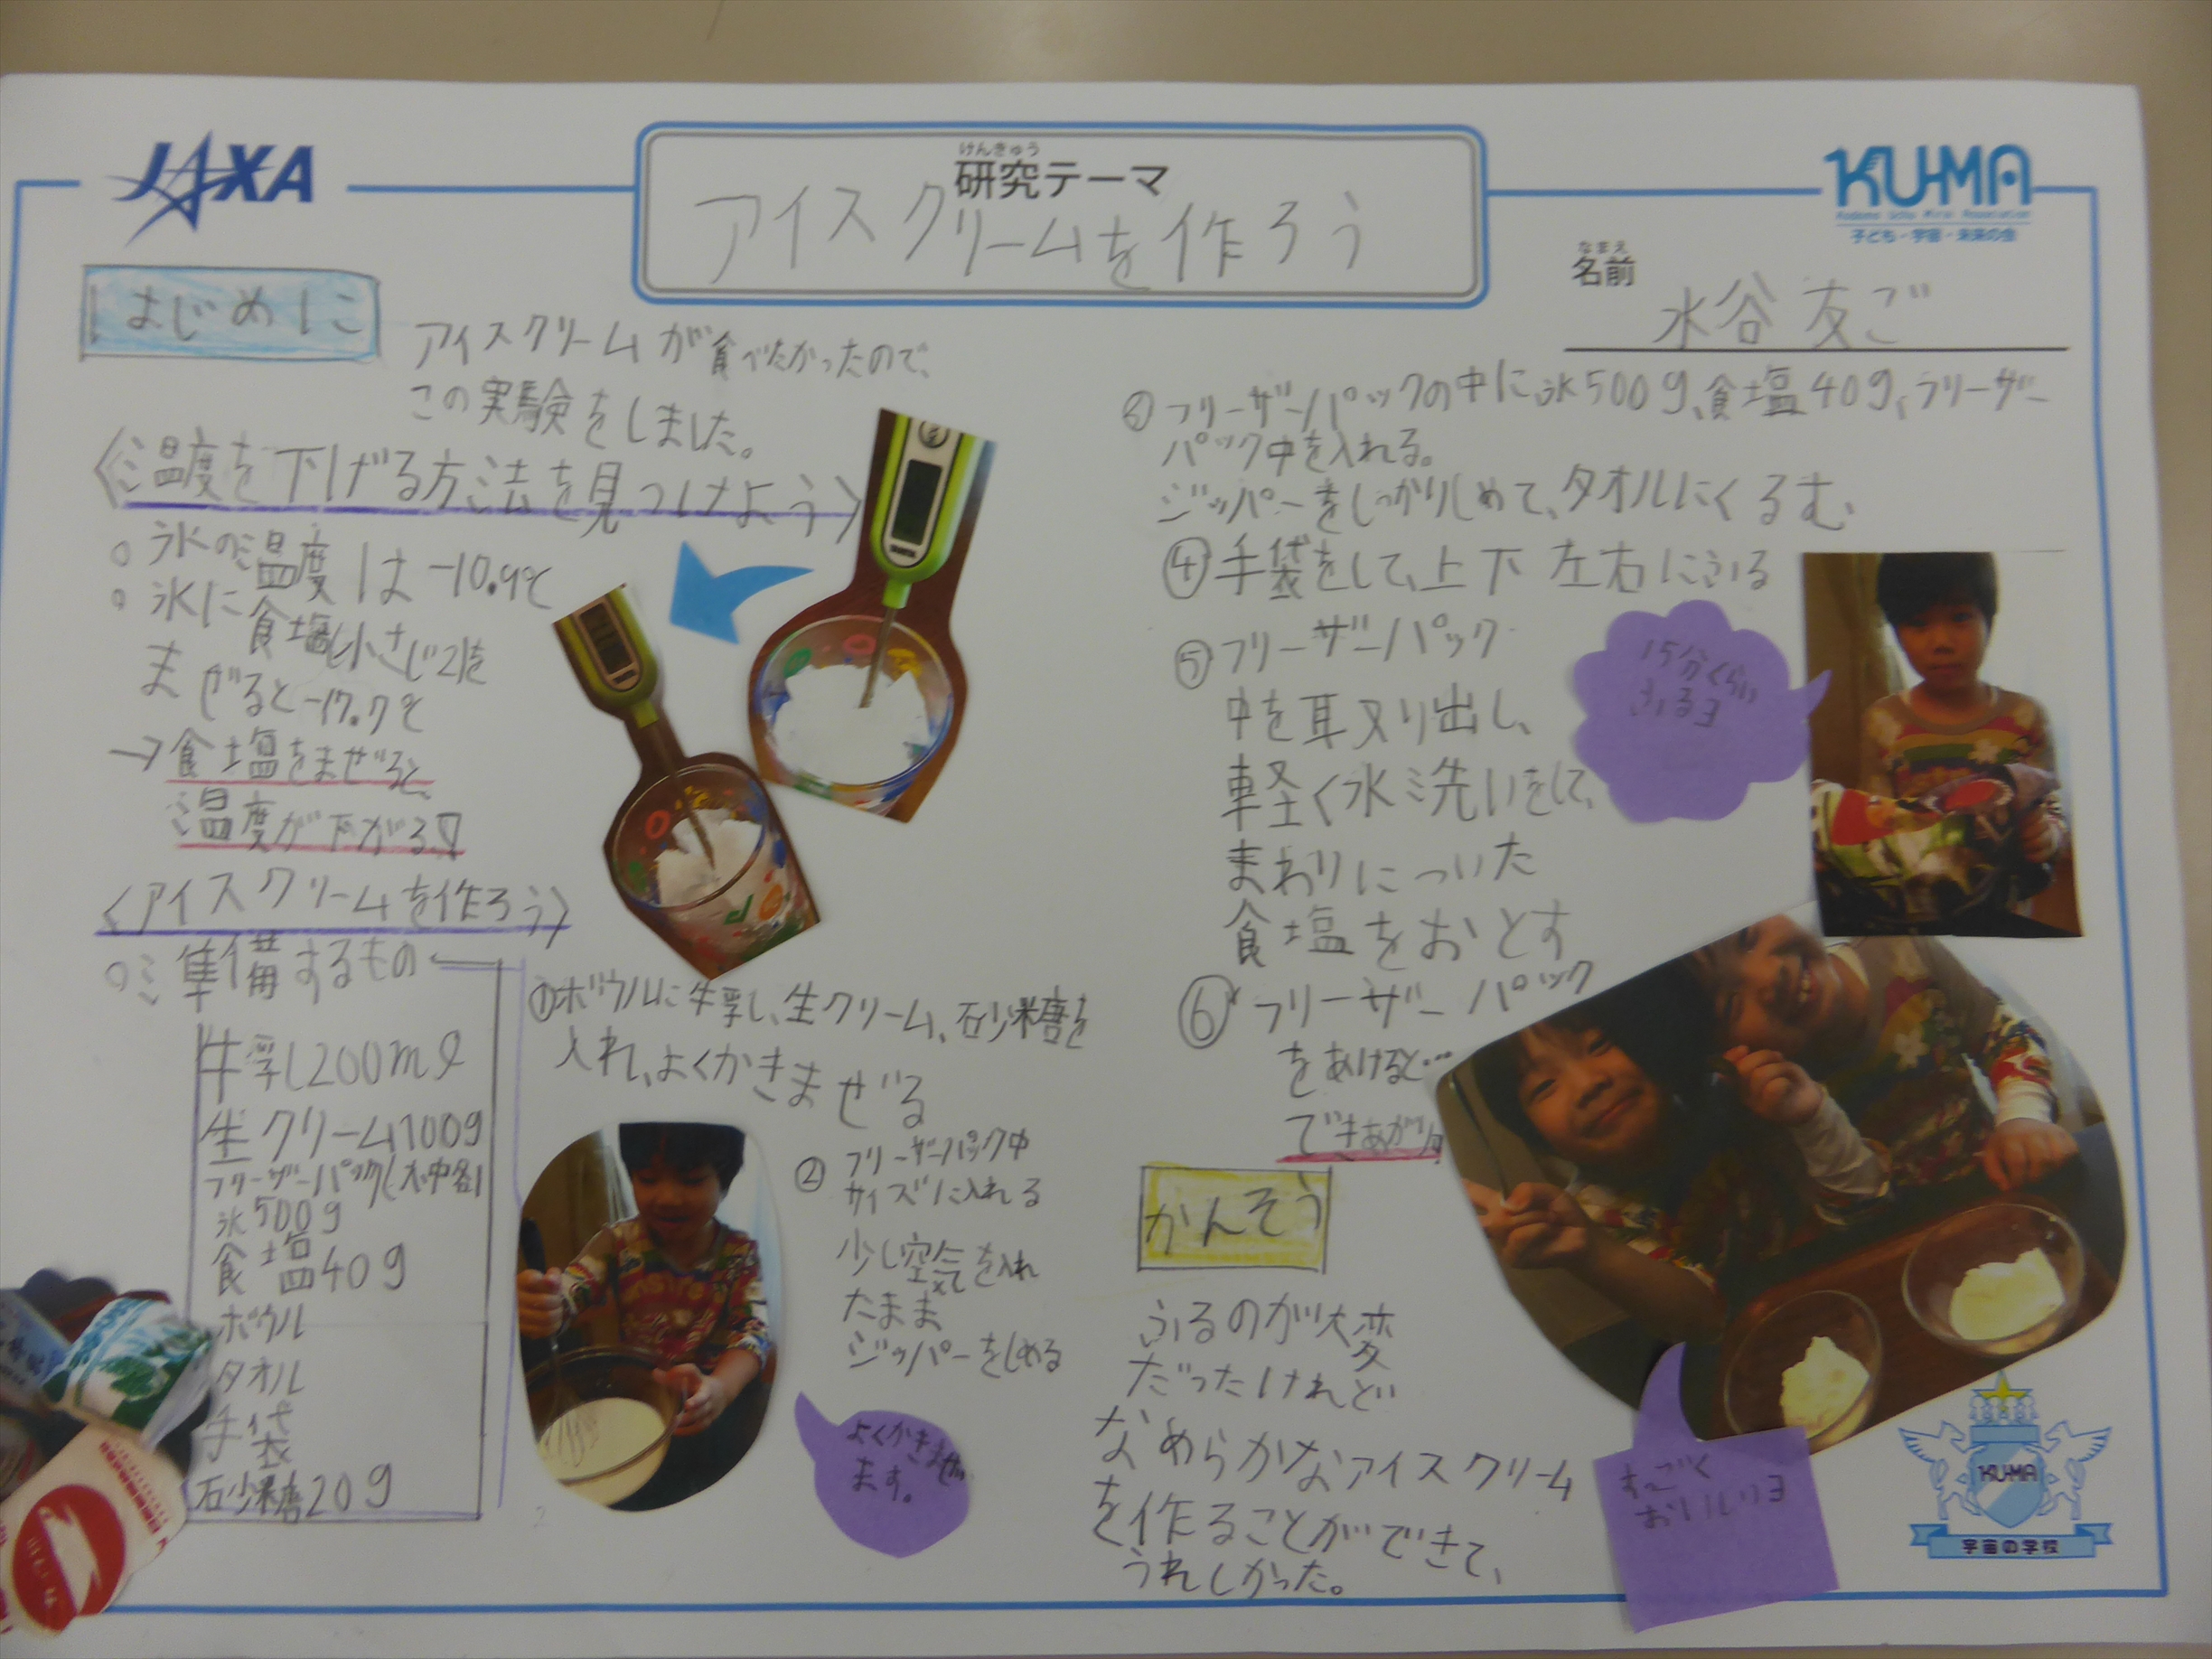 JAXA
けんきゅう
研究テーマ
アイスクリームを作ろう
KU-MA
Kodomo Uchu Mirai Association
子ども・宇宙・未来の会
なまえ
名前
水谷 友ご
はじめに
アイスクリームが食べたかったので、
この実験をしました。
〈温度を下げる方法を見つけよう〉
○氷の温度は-10.9℃
○氷に食塩(小さじ2)を
まぜると-17.7℃
→食塩をまぜると、
温度が下がる!!
〈アイスクリームを作ろう〉
○準備するもの
牛乳200mℓ
生クリーム100g
フリーザーパック(大中各1
氷500g
食塩40g
ボウル
タオル
手袋
砂糖20g
①ボウルに牛乳、生クリーム、砂糖を
入れ、よくかきまぜる
②フリーザーパック中
サイズに入れる
少し空気を入れ
たまま
ジッパーをしめる
よくかきまぜ
ます。
③フリーザーパックの中に氷500g、食塩40g、フリーザー
パック中を入れる。
ジッパーをしっかりしめて、タオルにくるむ、
④手袋をして、上下左右にふる
15分くらい
ふるヨ
⑤フリーザーパック
中を取り出し、
軽く水洗いをして、
まわりについた
食塩をおとす
⑥フリーザーパック
をあけると…
できあがり
かんそう
ふるのが大変
だったけれど
なめらかなアイスクリーム
を作ることができて、
うれしかった。
すっごく
おいしいヨ
KU-MA
宇宙の学校